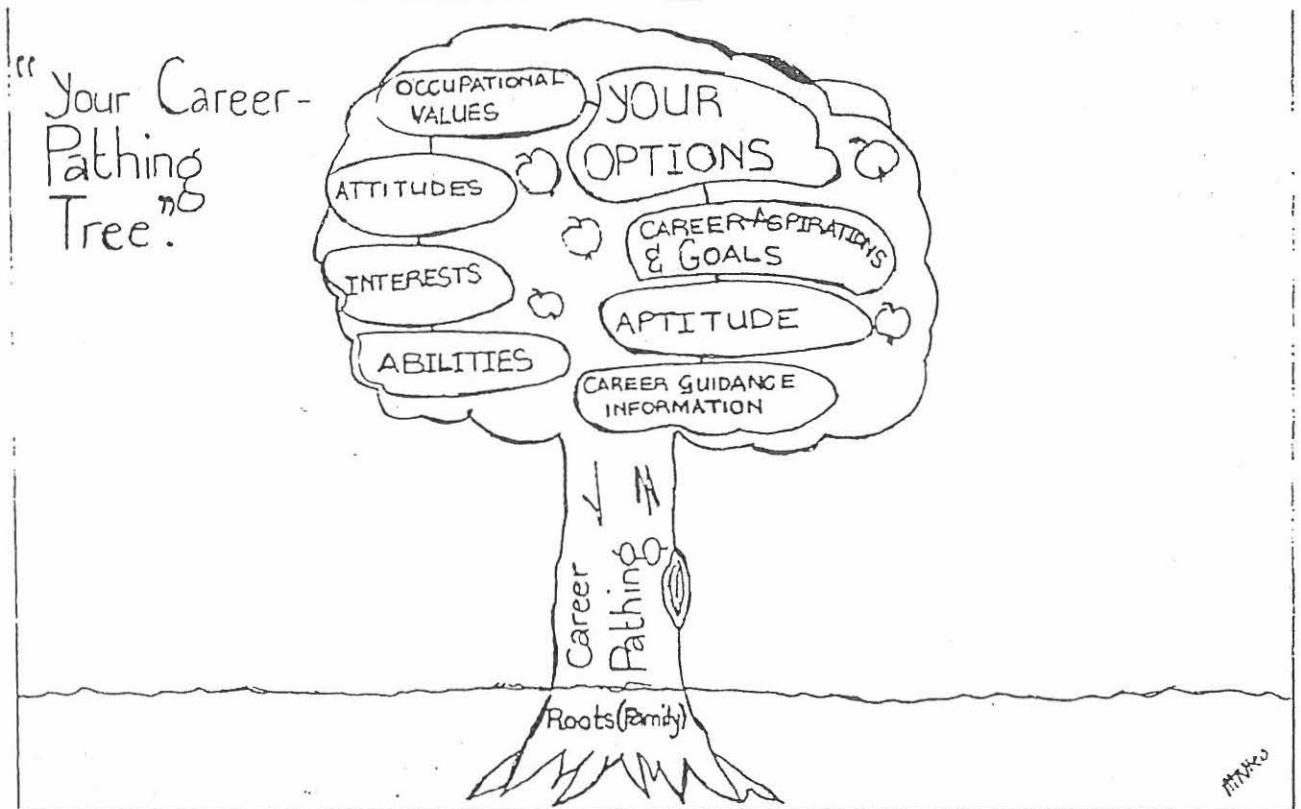 "Your Career-
Pathing
Tree."
OCCUPATIONAL
VALUES
YOUR
OPTIONS
ATTITUDES
CAREER-ASPIRATIONS
& GOALS
INTERESTS
APTITUDE
ABILITIES
CAREER GUIDANCE
INFORMATION
Career
Pathing
Roots (Family)